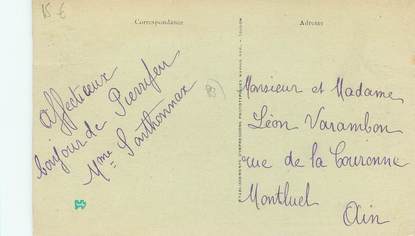 15 €
Correspondance
Adresse
Affectueux
bonjour de Pierrefeu
Mme Santhonnax
83
Monsieur et Madame
Léon Varambon
rue de la Couronne
Montluel
Ain